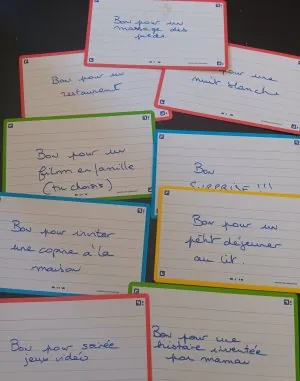 Bon pour un
massage des
pieds
Bon pour un
restaurant
pour une
nuit blanche
Bon pour un
film en famille
(tu choisis)
Bon
SURPRISE !!!
Bon pour inviter
une copine à la
maison
Bon pour un
petit déjeuner
au lit.
Bon pour soirée
jeux vidéo
Bon pour une
histoire inventée
par maman